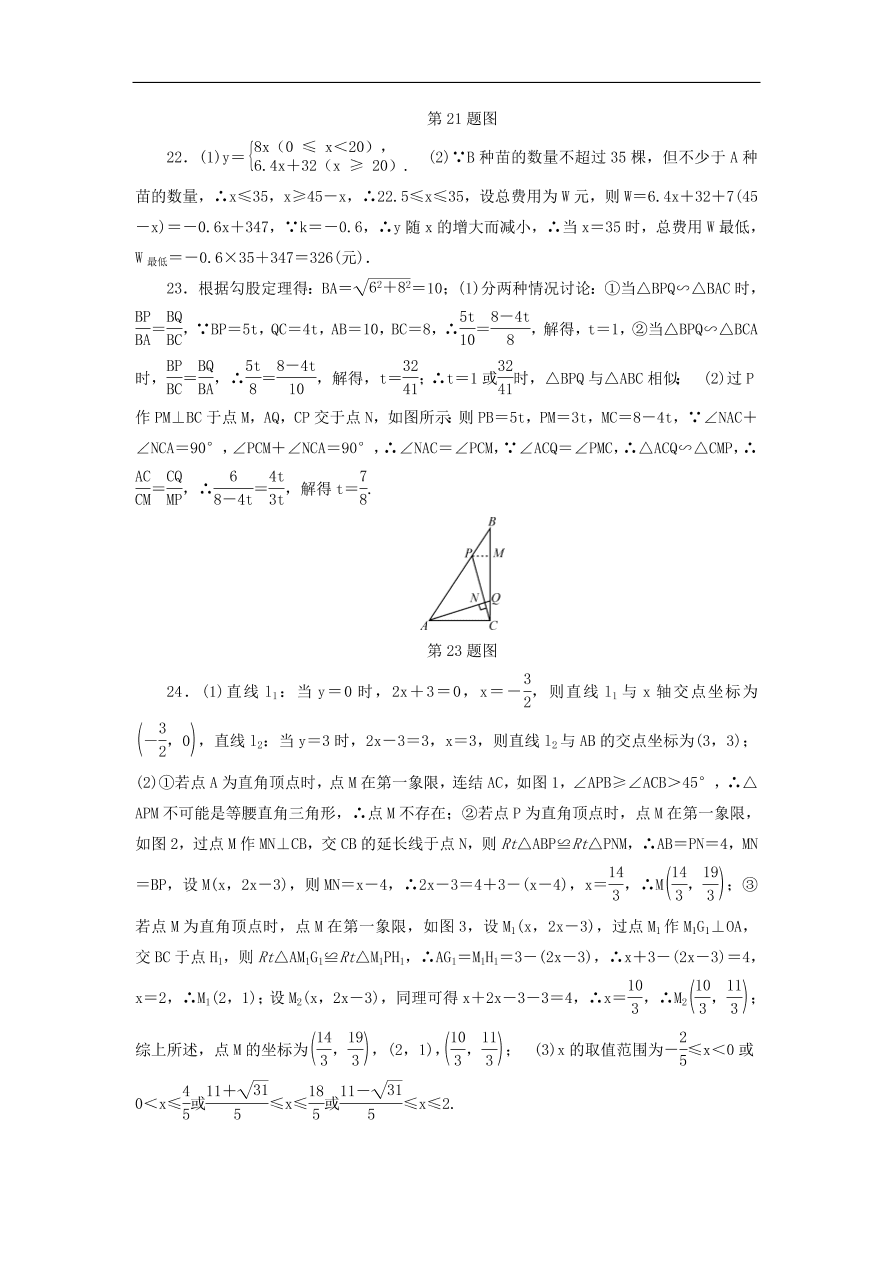 第 21 题图
22．(1)y＝{8x（0 ≤ x＜20），6.4x＋32（x ≥ 20）. (2)∵B 种苗的数量不超过 35 棵，但不少于 A 种
苗的数量，∴x≤35，x≥45－x，∴22.5≤x≤35，设总费用为 W 元，则 W＝6.4x＋32＋7(45
－x)＝－0.6x＋347，∵k＝－0.6，∴y 随 x 的增大而减小，∴当 x＝35 时，总费用 W 最低，
W 最低＝－0.6×35＋347＝326(元)．
23．根据勾股定理得：BA＝√(6²＋8²)＝10；(1)分两种情况讨论：①当△BPQ∽△BAC 时，
BP/BA＝BQ/BC，∵BP＝5t，QC＝4t，AB＝10，BC＝8，∴5t/10＝(8－4t)/8，解得，t＝1，②当△BPQ∽△BCA
时，BP/BC＝BQ/BA，∴5t/8＝(8－4t)/10，解得，t＝32/41；∴t＝1 或32/41时，△BPQ 与△ABC 相似； (2)过 P
作 PM⊥BC 于点 M，AQ，CP 交于点 N，如图所示：则 PB＝5t，PM＝3t，MC＝8－4t，∵∠NAC＋
∠NCA＝90°，∠PCM＋∠NCA＝90°，∴∠NAC＝∠PCM，∵∠ACQ＝∠PMC，∴△ACQ∽△CMP，∴
AC/CM＝CQ/MP，∴6/(8－4t)＝4t/3t，解得 t＝7/8.
B
P M
N Q
A C
第 23 题图
24．(1)直线 l₁：当 y＝0 时，2x＋3＝0，x＝－3/2，则直线 l₁ 与 x 轴交点坐标为
(－3/2，0)，直线 l₂：当 y＝3 时，2x－3＝3，x＝3，则直线 l₂ 与 AB 的交点坐标为(3，3)；
(2)①若点 A 为直角顶点时，点 M 在第一象限，连结 AC，如图 1，∠APB≥∠ACB＞45°，∴△
APM 不可能是等腰直角三角形，∴点 M 不存在；②若点 P 为直角顶点时，点 M 在第一象限，
如图 2，过点 M 作 MN⊥CB，交 CB 的延长线于点 N，则 Rt△ABP≌Rt△PNM，∴AB＝PN＝4，MN
＝BP，设 M(x，2x－3)，则 MN＝x－4，∴2x－3＝4＋3－(x－4)，x＝14/3，∴M(14/3，19/3)；③
若点 M 为直角顶点时，点 M 在第一象限，如图 3，设 M₁(x，2x－3)，过点 M₁ 作 M₁G₁⊥OA，
交 BC 于点 H₁，则 Rt△AM₁G₁≌Rt△M₁PH₁，∴AG₁＝M₁H₁＝3－(2x－3)，∴x＋3－(2x－3)＝4，
x＝2，∴M₁(2，1)；设 M₂(x，2x－3)，同理可得 x＋2x－3－3＝4，∴x＝10/3，∴M₂(10/3，11/3)；
综上所述，点 M 的坐标为(14/3，19/3)，(2，1)，(10/3，11/3)； (3)x 的取值范围为－2/5≤x＜0 或
0＜x≤4/5或(11＋√31)/5≤x≤18/5或(11－√31)/5≤x≤2.